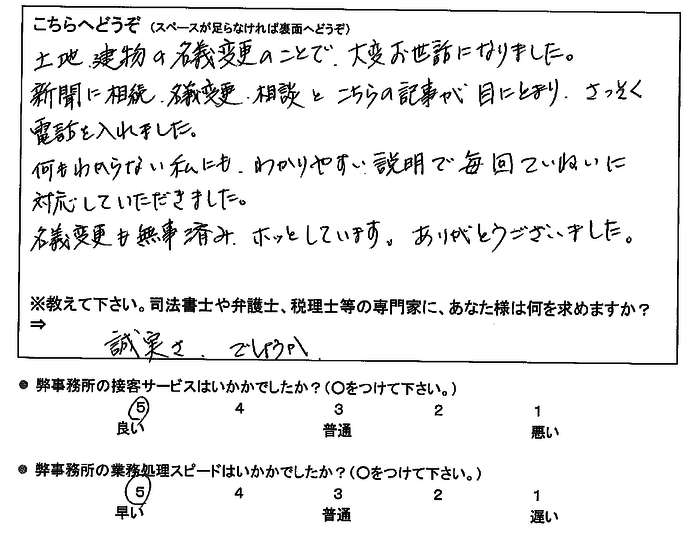 こちらへどうぞ (スペースが足らなければ裏面へどうぞ)
土地、建物の名義変更のことで、大変お世話になりました。
新聞に相続、名義変更、相談と こちらの記事が 目にとまり、さっそく
電話を入れました。
何もわからない私にも、わかりやすい説明で毎回ていねいに
対応していただきました。
名義変更も無事済み、ホッとしています。ありがとうございました。
※教えて下さい。司法書士や弁護士、税理士等の専門家に、あなた様は何を求めますか?
⇒
誠実さ、でしょうか。
● 弊事務所の接客サービスはいかがでしたか?(○をつけて下さい。)
5 4 3 2 1
良い 普通 悪い
● 弊事務所の業務処理スピードはいかがでしたか?(○をつけて下さい。)
5 4 3 2 1
早い 普通 遅い